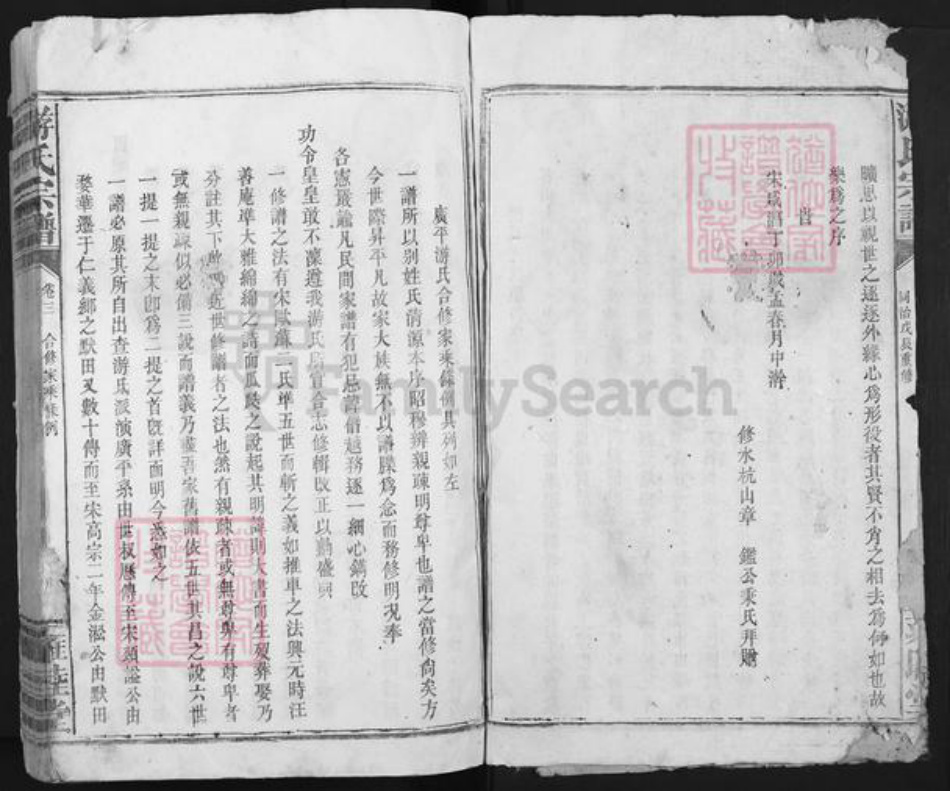 曠思以視世之逐逐外緣心為形役者其賢不肖之相去為何如也故
樂為之序
旹
宋咸淳丁卯歲孟春月中澣
修水杭山章　鑑公秉氏拜贈
游氏宗譜
同治戊辰重修
廣平游氏合修家乘條例具列如左
一譜所以别姓氏清源本序昭穆辨親疎明尊卑也譜之當修尙矣方
今世際昇平凡故家大族無不以譜牒為念而務修明况奉
各憲嚴諭凡民間家譜有犯忌諱僭越務逐一細心鐫改
功令皇皇敢不藻遵我游氏合志修輯改正以勷盛典
一修譜之法有宋歐蘇二氏準五世而斬之義如推車之法興元時汪
善庵準大雅綿綿之詩而瓜瓞之說起其明諱則大書而生殁葬娶乃
分註其下此近世修譜者之法也然有親疎者或無尊卑有尊卑者
或無親疎似必備三說而譜義乃盡吾家舊譜依五世其昌之說六世
一提一提之末即為二提之首既詳而明今悉如之
一譜必原其所自出查游氏派演廣平系由世叔歷傳至宋頴謚公由
婺華遷于仁義鄉之默田又數十傳而至宋高宗二年金淞公由默田
游氏宗譜
卷三
合修家乘條例
FamilySearch